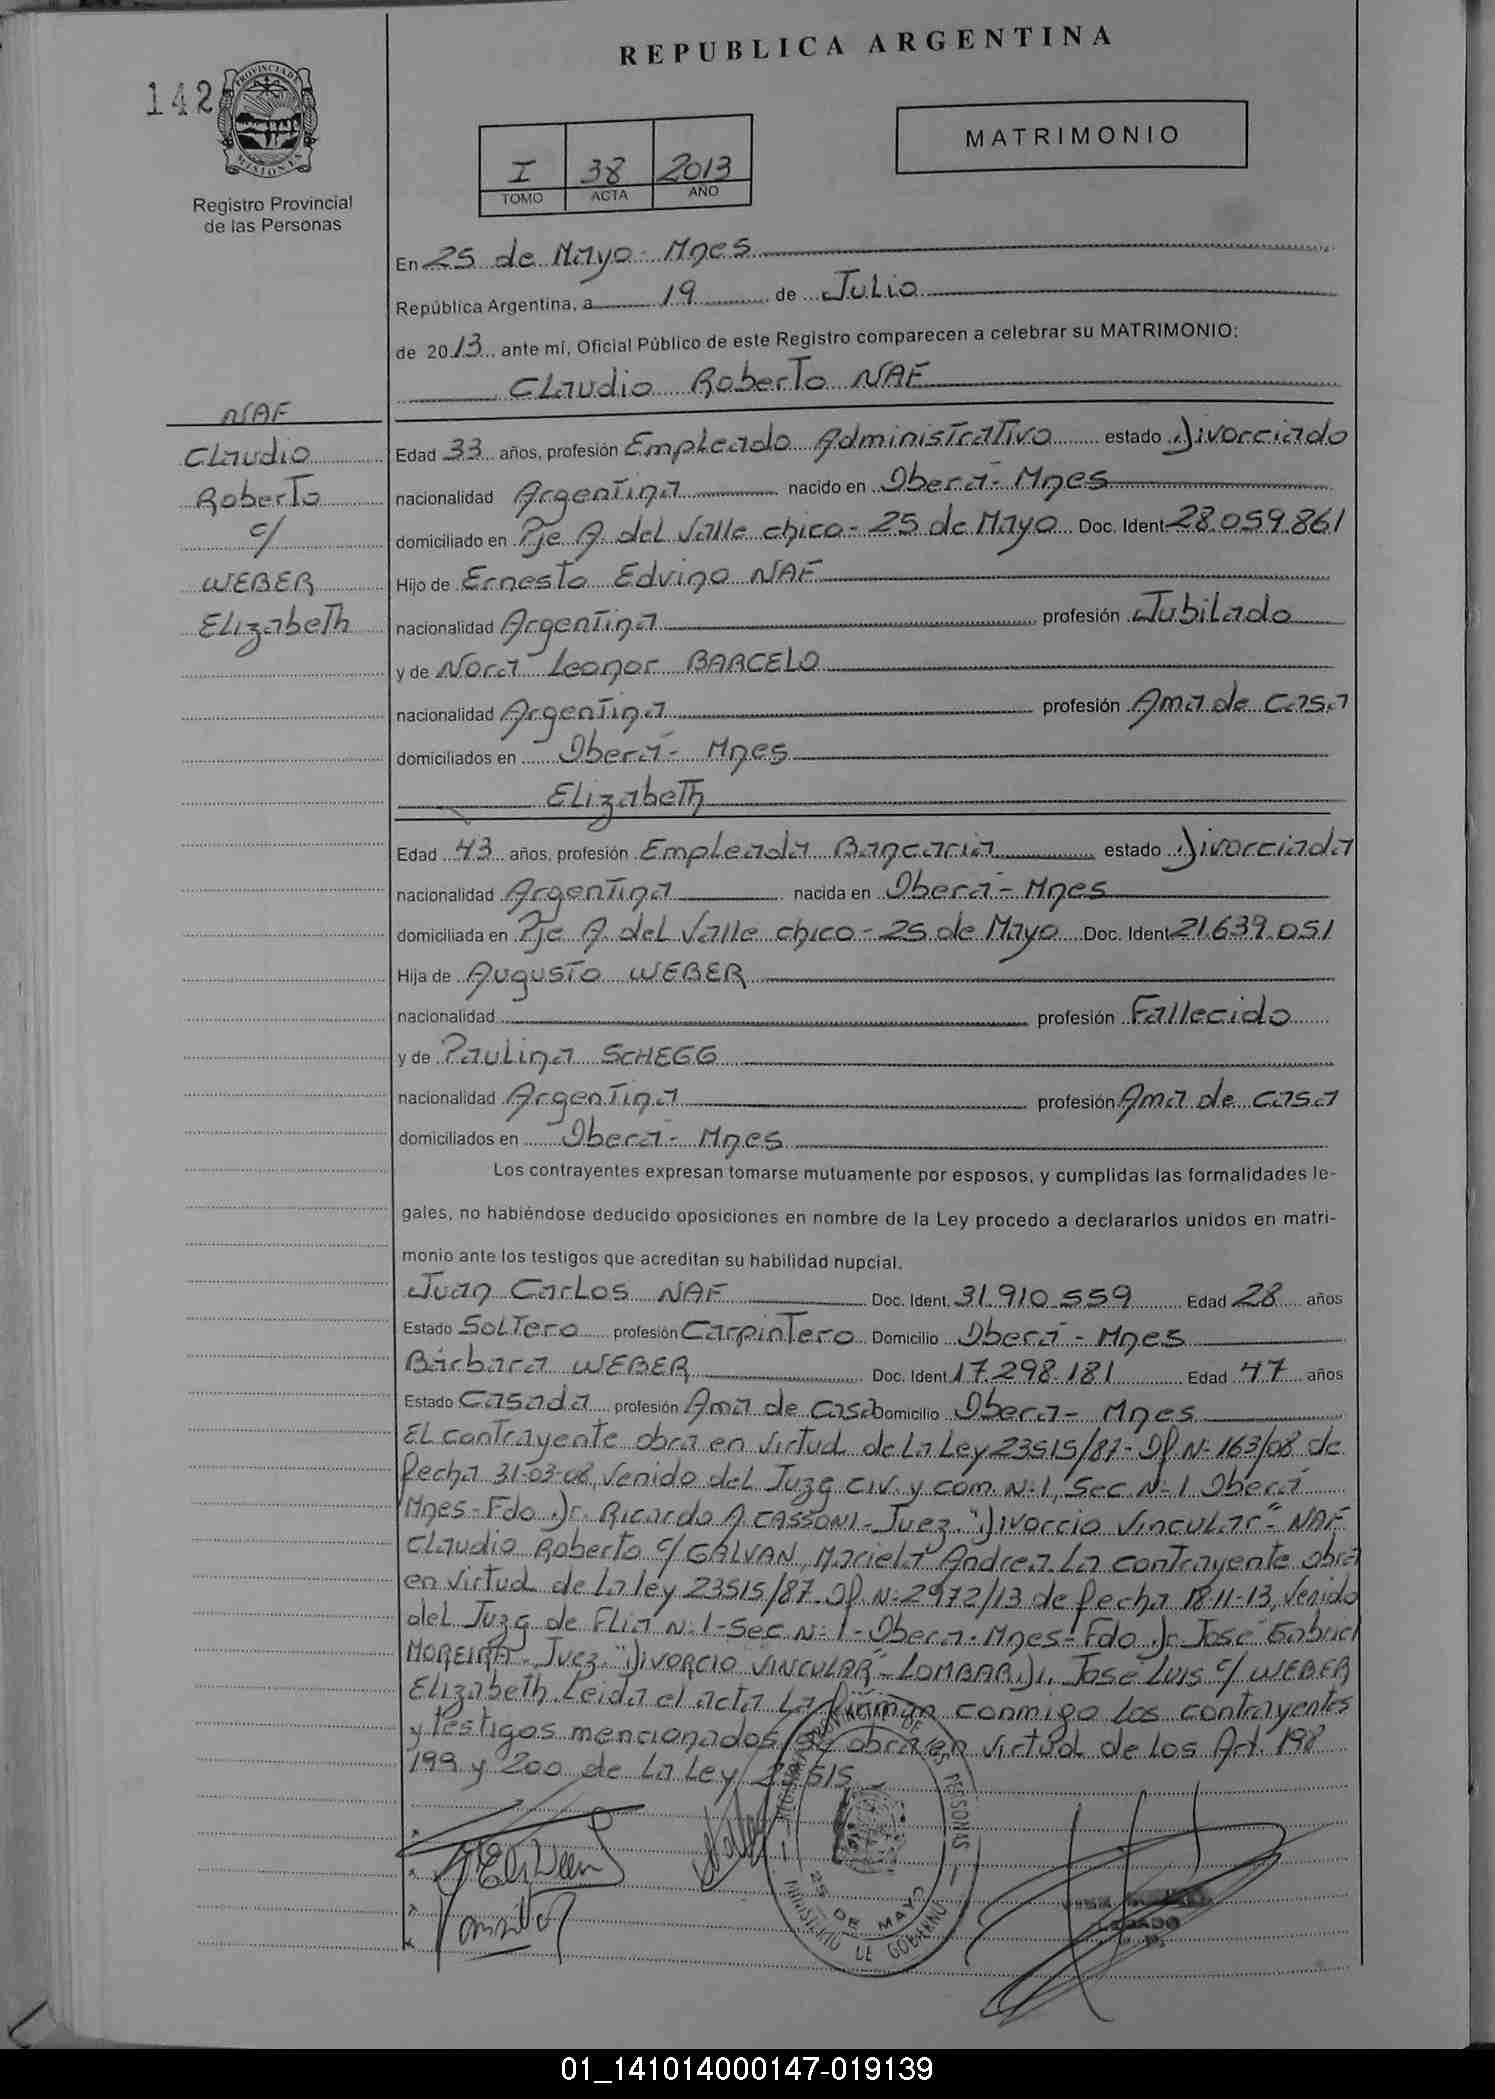 REPUBLICA ARGENTINA
142
PROVINCIA DE
MISIONES
Registro Provincial
de las Personas
MATRIMONIO
I 38 2013
TOMO ACTA AÑO
En 25 de Mayo - Mnes
República Argentina, a 19 de Julio
de 2013 ante mí, Oficial Público de este Registro comparecen a celebrar su MATRIMONIO:
Claudio Roberto NAF
NAF
Claudio
Roberto
c/
WEBER
Elizabeth
Edad 33 años, profesión Empleado Administrativo estado Divorciado
nacionalidad Argentina nacido en Oberá - Mnes
domiciliado en Pje A. del Valle chico - 25 de Mayo Doc. Ident 28.059.861
Hijo de Ernesto Edvino NAF
nacionalidad Argentina profesión Jubilado
y de Nora Leonor BARCELO
nacionalidad Argentina profesión Ama de casa
domiciliados en Oberá - Mnes
Elizabeth
Edad 43 años, profesión Empleada Bancaria estado Divorciada
nacionalidad Argentina nacida en Oberá - Mnes
domiciliada en Pje A. del Valle chico - 25 de Mayo Doc. Ident 21.639.051
Hija de Augusto WEBER
nacionalidad profesión Fallecido
y de Paulina SCHEGG
nacionalidad Argentina profesión Ama de casa
domiciliados en Oberá - Mnes
Los contrayentes expresan tomarse mutuamente por esposos, y cumplidas las formalidades le-
gales, no habiéndose deducido oposiciones en nombre de la Ley procedo a declararlos unidos en matri-
monio ante los testigos que acreditan su habilidad nupcial.
Juan Carlos NAF Doc. Ident. 31.910.559 Edad 28 años
Estado Soltero profesión Carpintero Domicilio Oberá - Mnes
Bárbara WEBER Doc. Ident 17.298.181 Edad 47 años
Estado Casada profesión Ama de casa Domicilio Oberá - Mnes
El contrayente obra en virtud de la Ley 23515/87 - Of. N: 163/08 de
fecha 31-03-08, venido del Juzg civ. y com. N: 1, Sec. N: 1 Oberá
Mnes - Fdo Dr. Ricardo A. CASSONI - Juez. "Divorcio Vincular" - NAF
Claudio Roberto c/ GALVAN, Mariela Andrea. La contrayente obra
en virtud de la ley 23515/87. Of. N: 2972/13 de fecha 18-11-13, venido
del Juzg de Flia N: 1 - Sec N: 1 - Oberá - Mnes - Fdo Dr. José Gabriel
MOREIRA - Juez. "DIVORCIO VINCULAR" - LOMBARDI, José Luis c/ WEBER
Elizabeth. Leída el acta la firman conmigo los contrayentes
y testigos mencionados, se obra en virtud de los Art. 198
199 y 200 de la Ley 23515
REGISTRO PROVINCIAL DE LAS PERSONAS
25 DE MAYO
MINISTERIO DE GOBIERNO
01_141014000147-019139